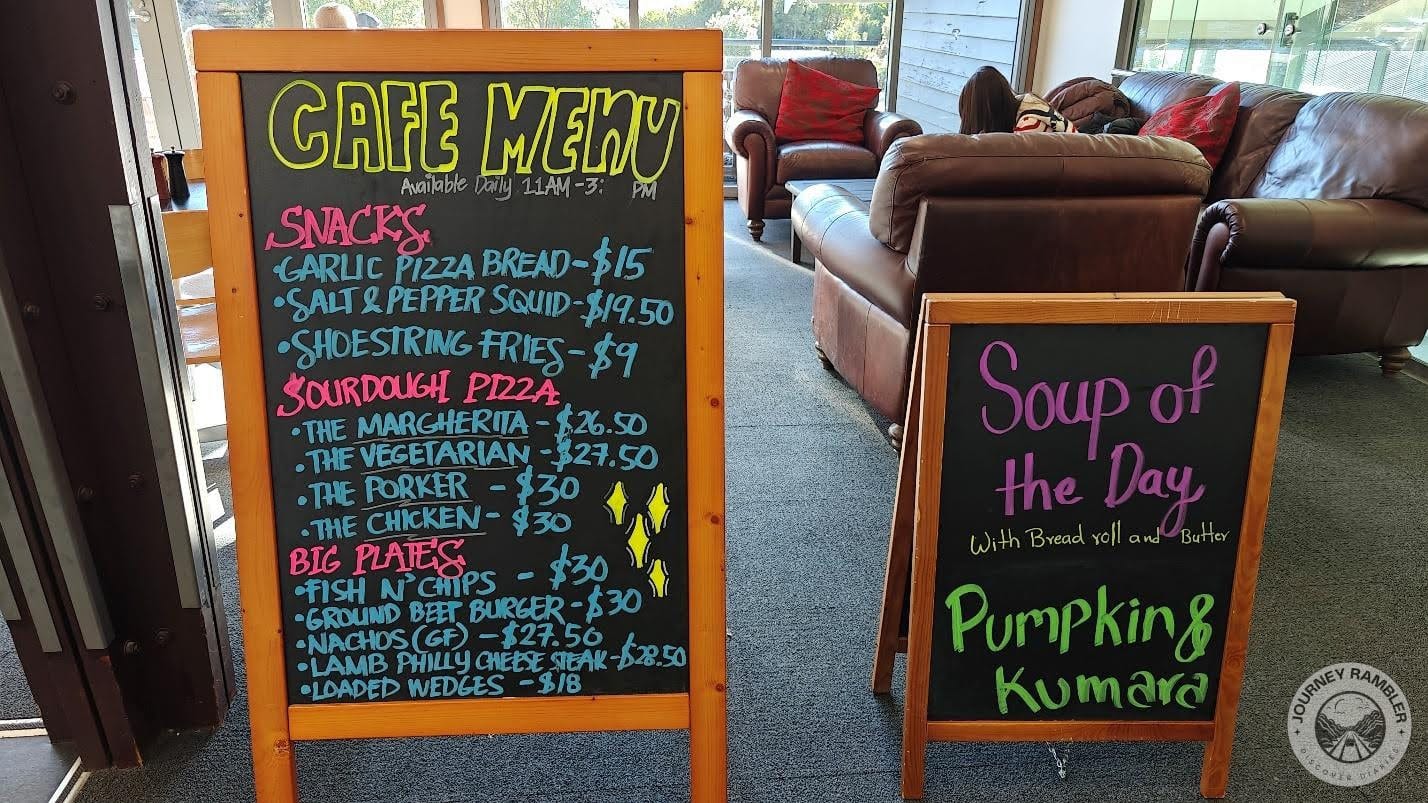 CAFE MENU
Available Daily 11AM-3: PM
SNACKS
•GARLIC PIZZA BREAD-$15
•SALT & PEPPER SQUID-$19.50
•SHOESTRING FRIES-$9
SOURDOUGH PIZZA
•THE MARGHERITA - $26.50
•THE VEGETARIAN -$27.50
•THE PORKER - $30
•THE CHICKEN - $30
BIG PLATES
•FISH N' CHIPS - $30
•GROUND BEEF BURGER-$30
•NACHOS (GF) - $27.50
•LAMB PHILLY CHEESE STEAK-$28.50
•LOADED WEDGES - $18
Soup of
the Day
With Bread roll and Butter
Pumpkin &
Kumara
JOURNEY RAMBLER
DISCOVER DIARIES